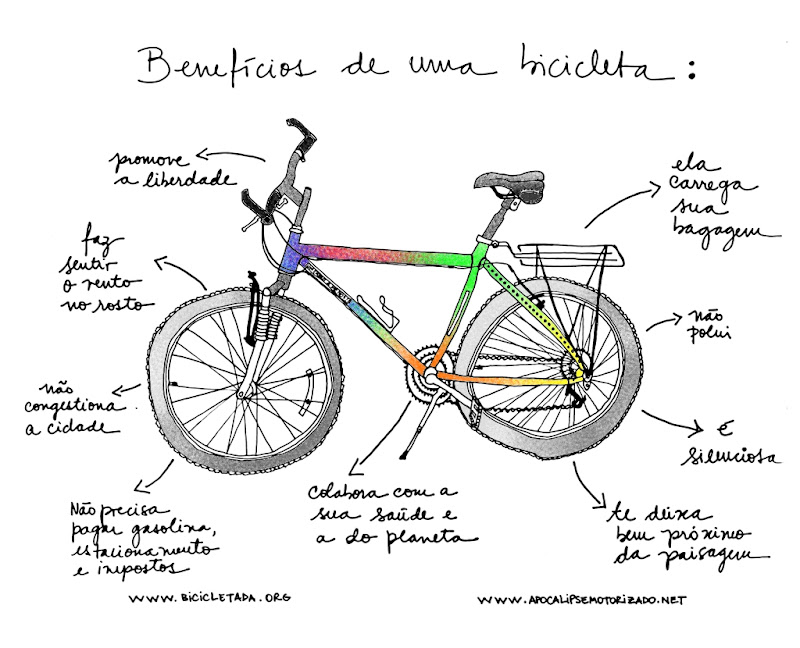 Benefícios de uma bicicleta:
promove
a liberdade
faz
sentir
o vento
no rosto
não
congestiona
a cidade
Não precisa
pagar gasolina,
estacionamento
e impostos
colabora com a
sua saúde e
a do planeta
ela
carrega
sua
bagagem
não
polui
é
silenciosa
te deixa
bem próximo
da paisagem
WWW.BICICLETADA.ORG
WWW.APOCALIPSEMOTORIZADO.NET